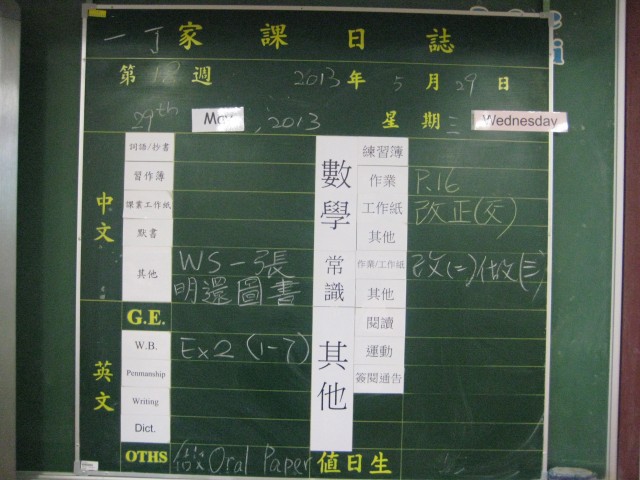 一丁家課日誌
第 週 2013年5月29日
29th May, 2013 星期三 Wednesday
中文
詞語/抄書
習作簿
課業工作紙
默書
其他 WS一張
明還圖書
G.E.
英文
W.B. Ex2 (1-7)
Penmanship
Writing
Dict.
OTHS Oral Paper
數學
練習簿
作業 P.16
工作紙 改正(交)
其他
常識
作業/工作紙 改(二)做(三)
其他
其他
閱讀
運動
簽閱通告
值日生